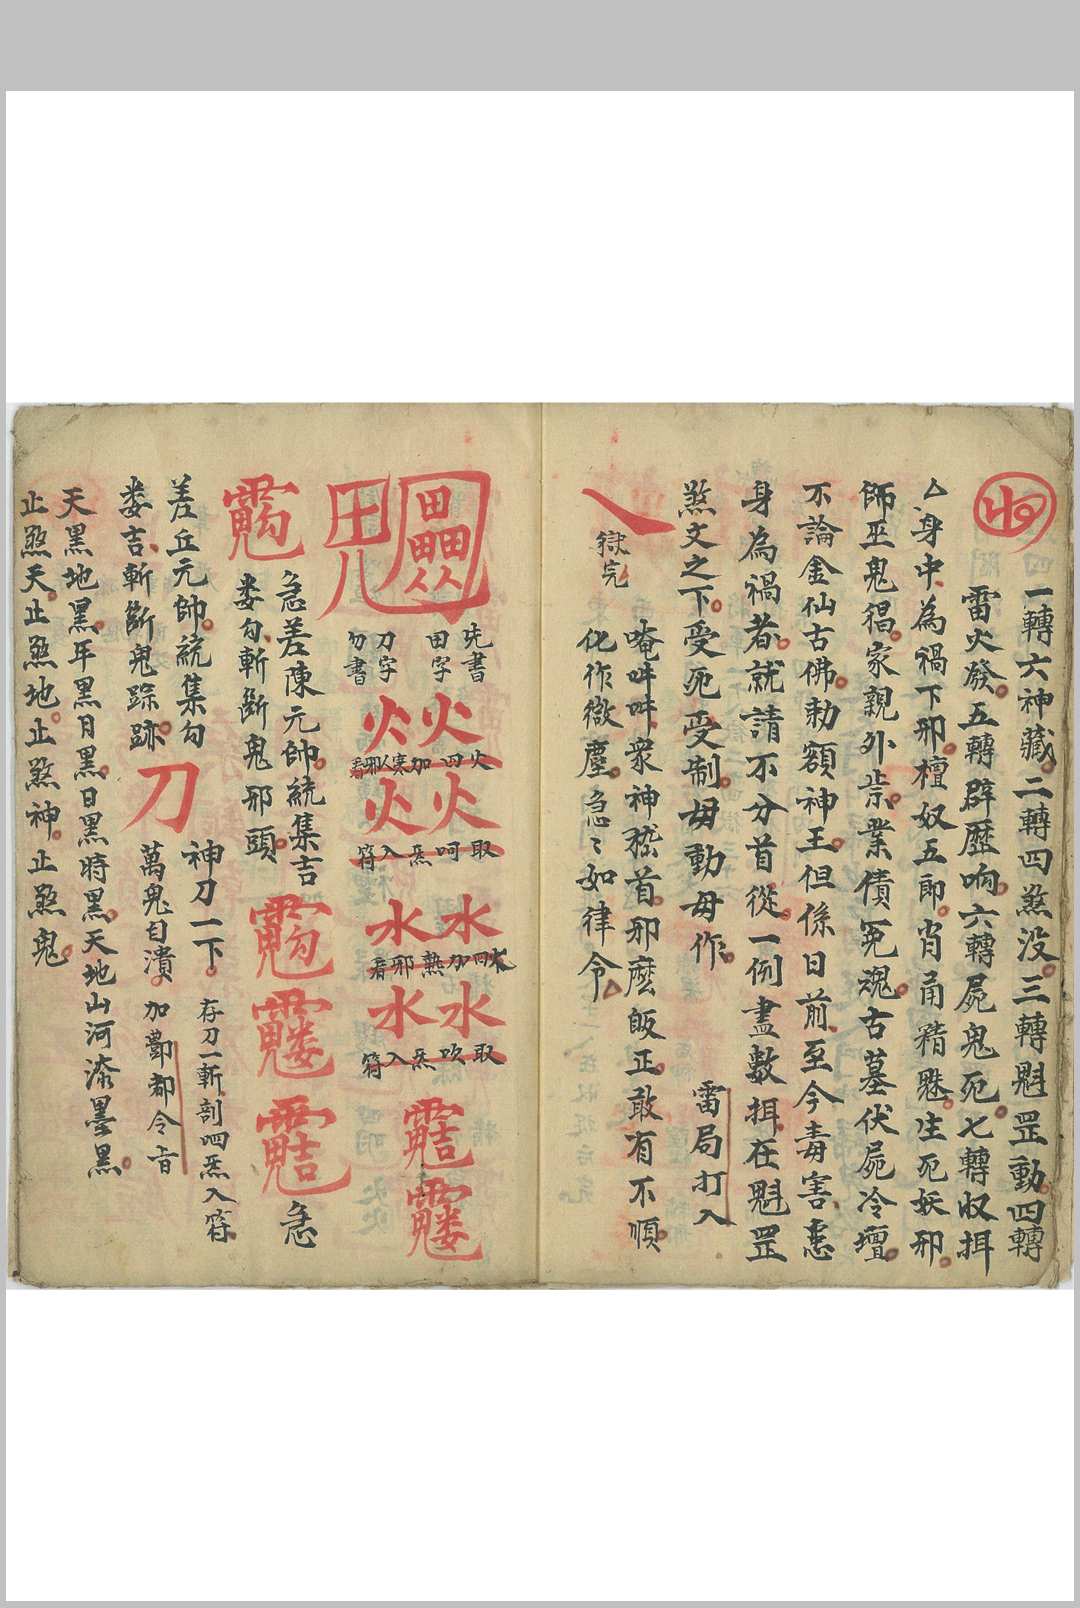 一轉六神藏二轉四煞没三轉魁罡動四轉
雷火發五轉辟歷响六轉屍鬼死七轉收捐
厶身中為禍下邪檀奴五郎肖甬精魅生死妖邪
師巫鬼猖家親外祟業債冤魂古墓伏屍冷壇
不論金仙古佛勅額神王但係日前至今毒害患
身為禍者就請不分首從一例盡數捐在魁罡
煞文之下受死受制毋動毋作
雷局打入
唵吽吽衆神嵇首邪麽皈正敢有不順
獄完
化作微塵急〻如律令
先書
田字
刀字
勿書
火 火
火四加寒人邪看
火 火
取呵炁入符
水 水
水四加熱邪看
水 水
取吹炁入符
急差陳元帥統集吉
婁勾斬斷鬼邪頭
急
差丘元帥統集勾
婁吉斬斷鬼踪跡
刀
神刀一下
萬鬼自潰
存刀一斬剖呬炁入符
加酆都令旨
天黑地黑年黑月黑日黑時黑天地山河漆墨黑
止煞天止煞地止煞神止煞鬼